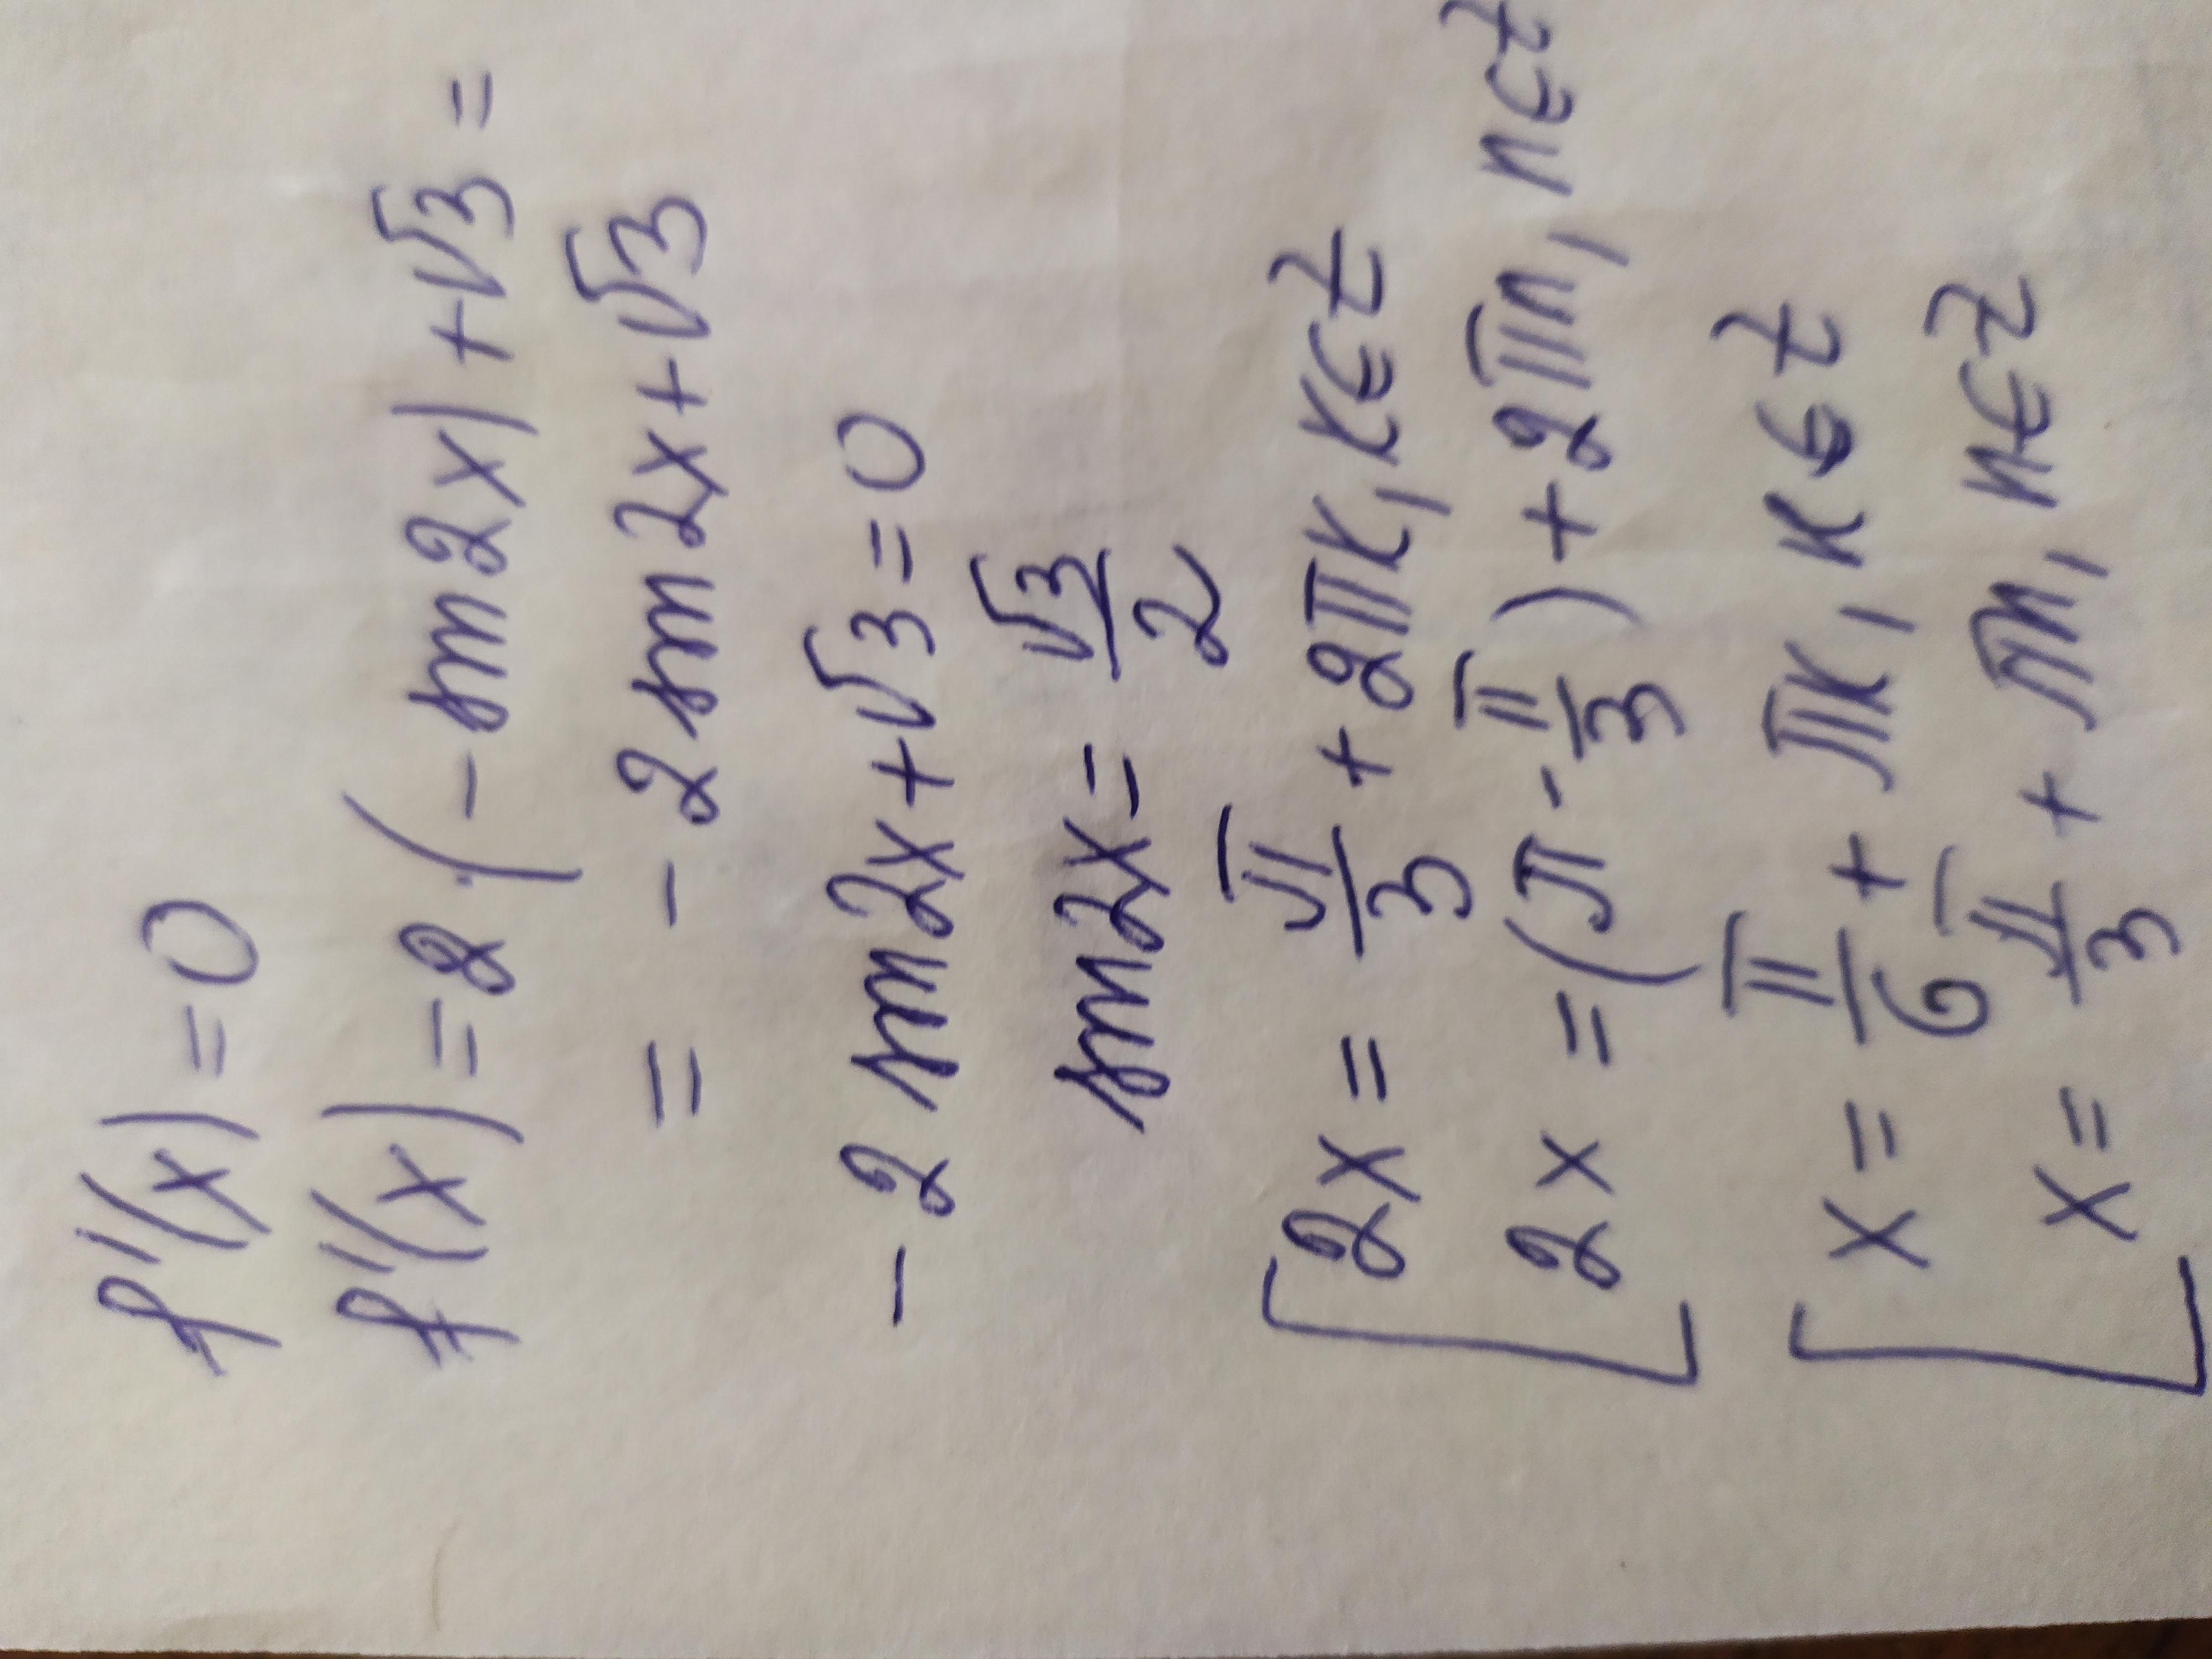 f'(x)=0
f'(x)=2·(-sin2x)+√3=
= -2sin2x+√3
-2sin2x+√3=0
sin2x=√3/2
[2x=π/3+2πk, k∈Z
2x=(π-π/3)+2πn, n∈Z
[x=π/6+πk, k∈Z
x=π/3+πn, n∈Z